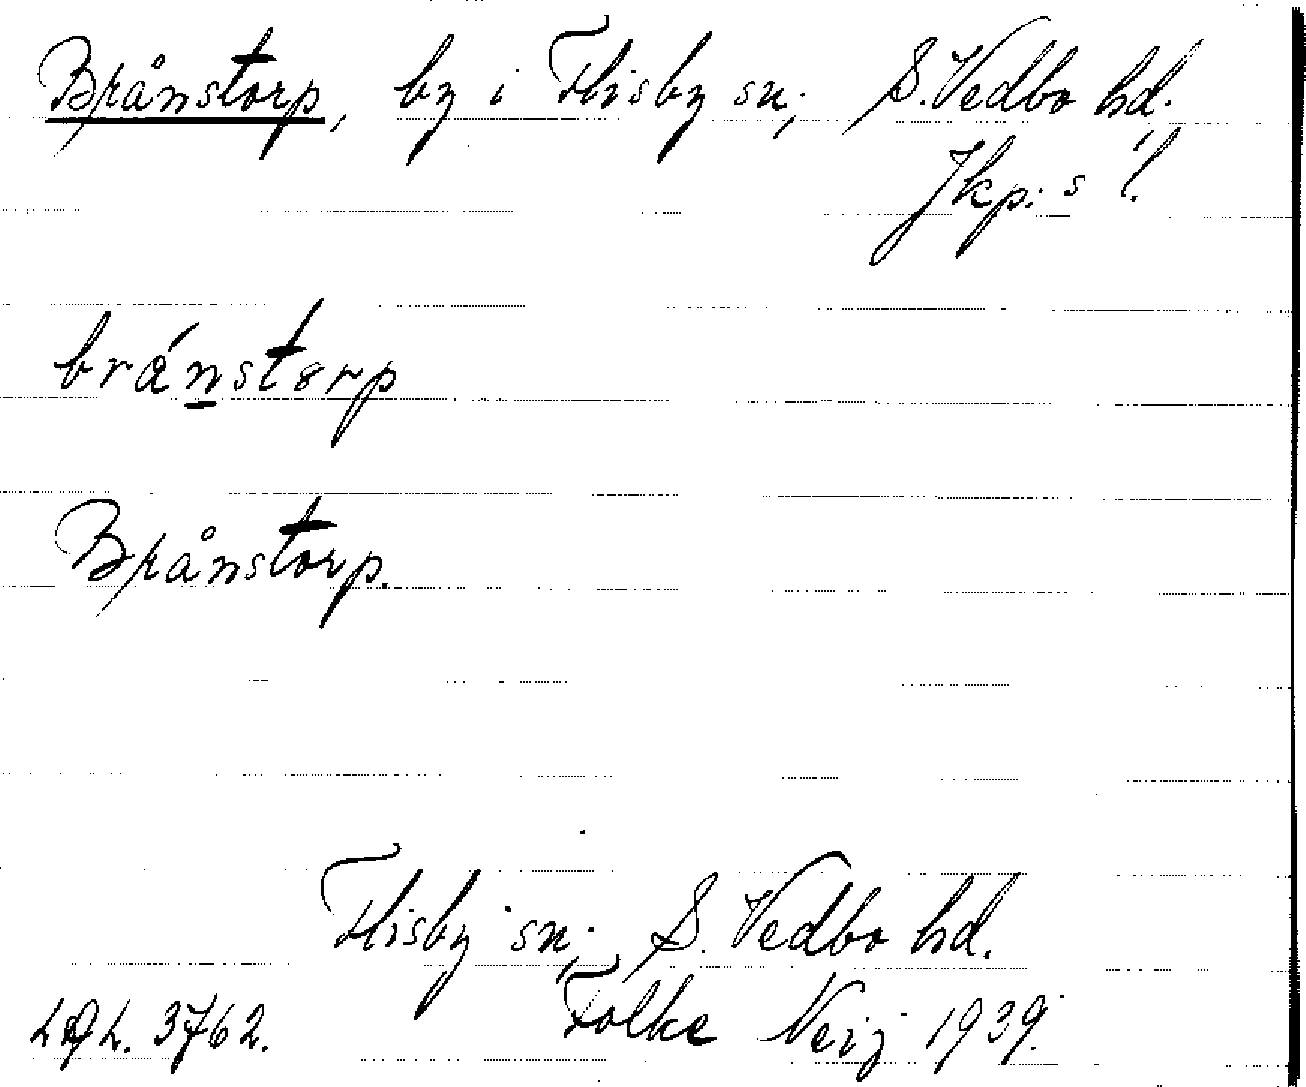 Brånstorp, by i Flisby sn; S. Vedbo hd.
Jkp:s l.
bránstorp
Brånstorp.
Flisby sn; S. Vedbo hd.
3762. Folke Neij 1939.